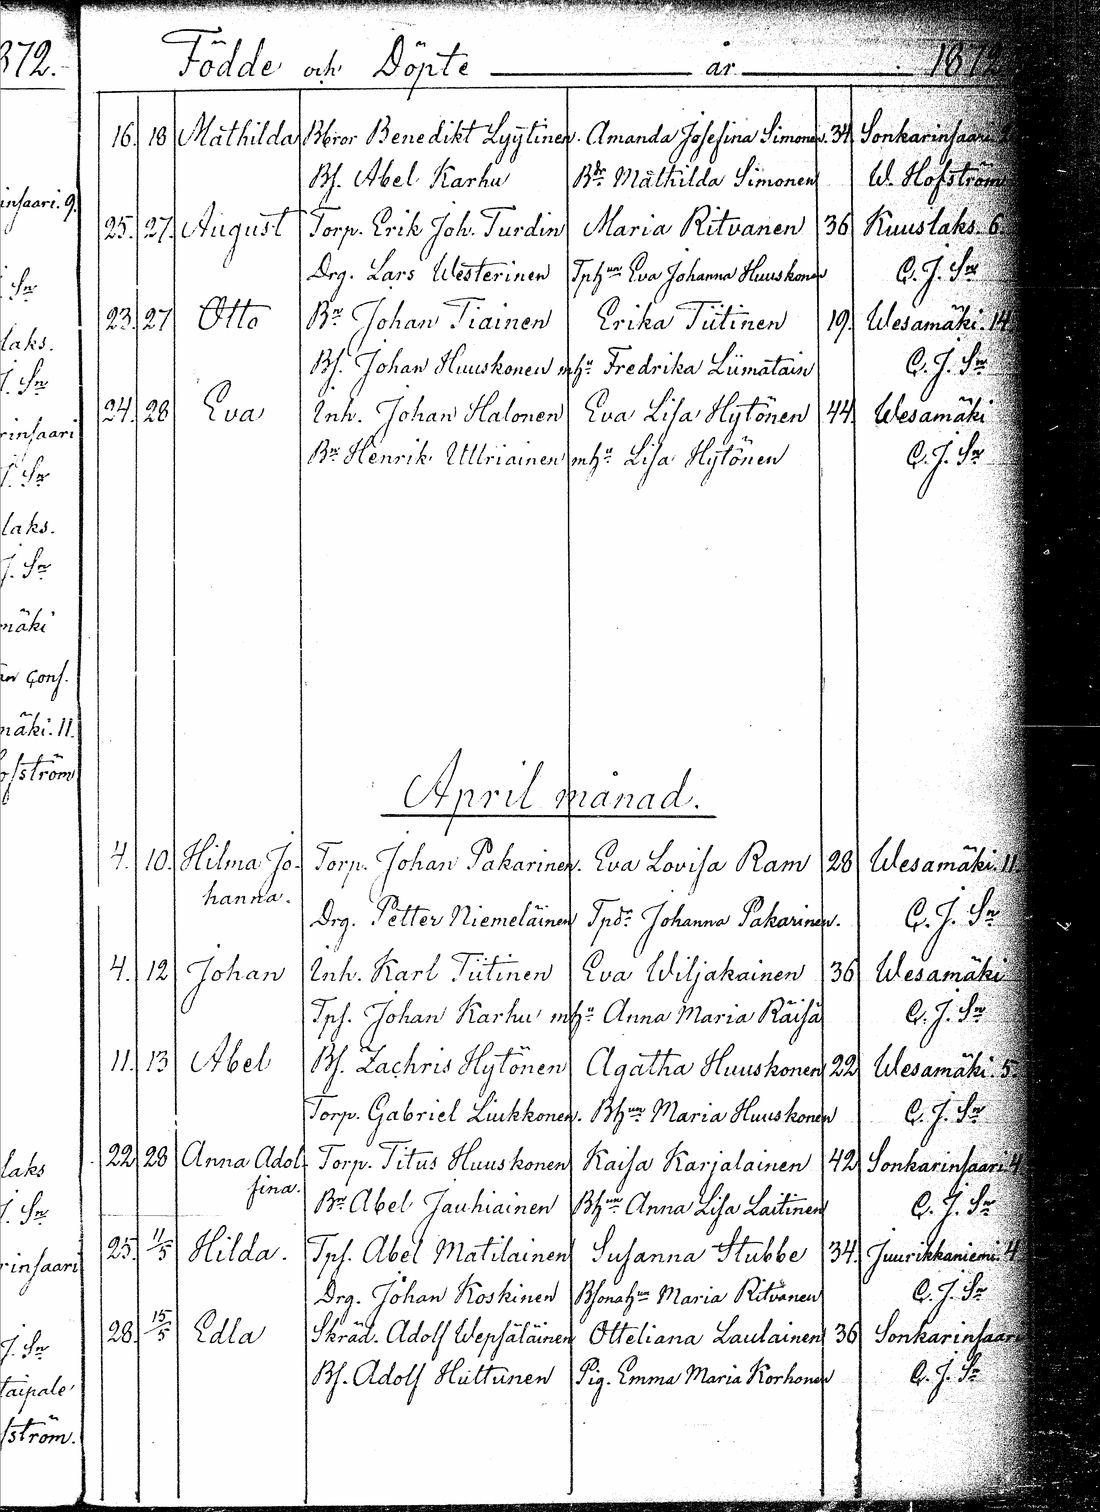 872.
Födde och Döpte år 1872
16. 18 Mathilda Bbror Benedikt Lyytinen. Amanda Josefina Simonen. 34. Sonkarinsaari.
Bs. Abel Karhu Bdr Mathilda Simonen W. Hofström
insaari. 9.
25. 27. August Torp. Erik Joh. Turdin Maria Ritvanen 36 Kuuslaks. 6.
Drg. Lars Westerinen Tphun Eva Johanna Huuskonen C. J. Sn
Sn
23. 27 Otto Bn Johan Tiainen Erika Tiitinen 19. Wesamäki. 14.
laks.
Bs. Johan Huuskonen mhu Fredrika Liimatain C. J. Sn
J. Sn
24. 28 Eva Inh. Johan Halonen Eva Lisa Hytönen 44. Wesamäki
rinsaari
Bn Henrik Ullriainen mhu Lisa Hytönen C. J. Sn
J. Sn
laks.
J. Sn
mäki
Cons.
mäki. 11.
ofström
April månad.
4. 10. Hilma Jo- Torp. Johan Pakarinen. Eva Lovisa Ram 28 Wesamäki. 11.
hanna.
Drg. Petter Niemeläinen Tpdr Johanna Pakarinen. C. J. Sn
4. 12 Johan Inh. Karl Tiitinen Eva Wiljakainen 36 Wesamäki
Tps. Johan Karhu mhu Anna Maria Räisä C. J. Sn
11. 13 Abel Bs. Zachris Hytönen Agatha Huuskonen 22 Wesamäki. 5.
Torp. Gabriel Liukkonen. Bhun Maria Huuskonen C. J. Sn
22. 28 Anna Adol- Torp. Titus Huuskonen Kaisa Karjalainen 42 Sonkarinsaari 4
laks
fina.
Bn Abel Jauhiainen Bhun Anna Lisa Laitinen C. J. Sn
J. Sn
25. 11/5 Hilda. Tps. Abel Matilainen Susanna Stubbe 34. Juurikkaniemi. 4
rinsaari
Drg. Johan Koskinen Bsonahun Maria Ritvanen C. J. Sn
28. 15/5 Edla Skräd. Adolf Wepsäläinen Otteliana Laulainen 36 Sonkarinsaari
J. Sn
Bs. Adolf Hultunen Pig. Emma Maria Korhonen C. J. Sn
taipale
fström.